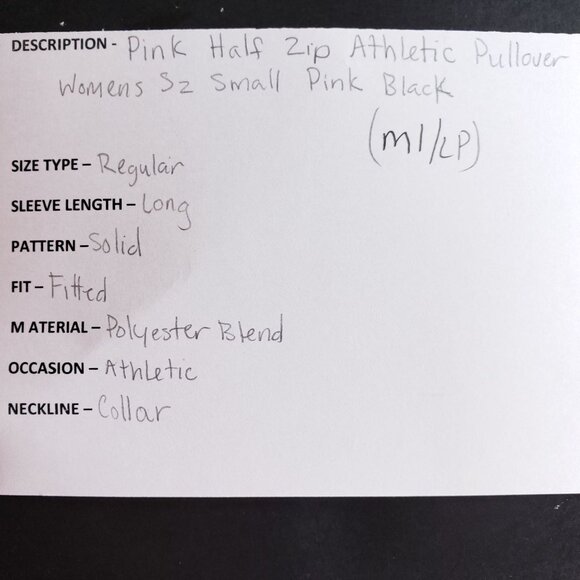 DESCRIPTION - Pink Half Zip Athletic Pullover
Womens Sz Small Pink Black
(M1/LP)
SIZE TYPE – Regular
SLEEVE LENGTH – Long
PATTERN – Solid
FIT – Fitted
M ATERIAL – Polyester Blend
OCCASION – Athletic
NECKLINE – Collar